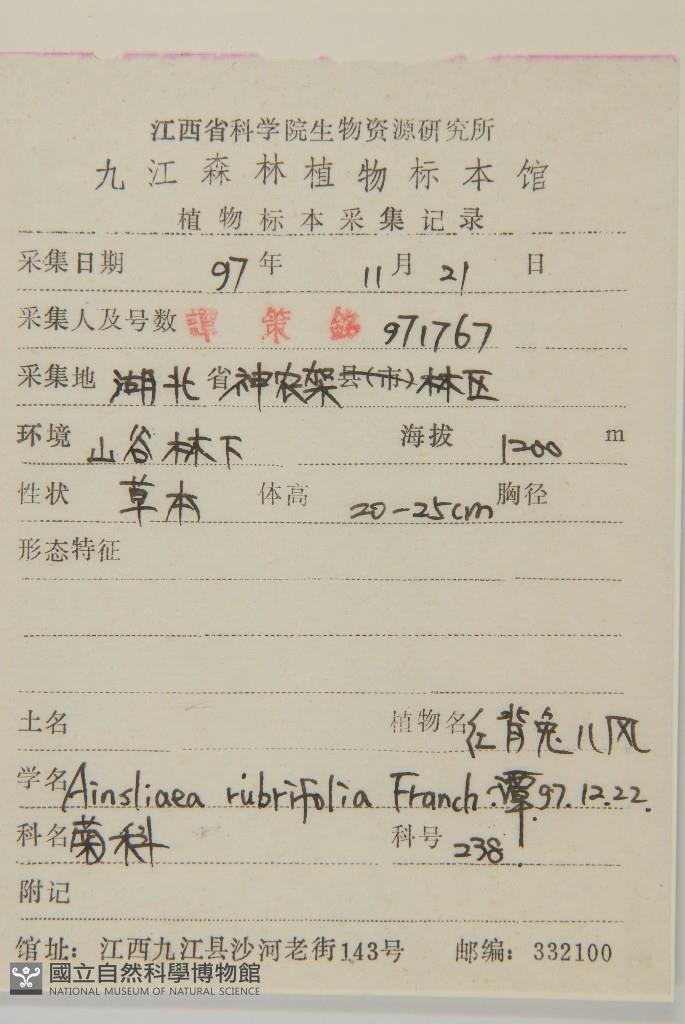 江西省科学院生物资源研究所
九江森林植物标本馆
植物标本采集记录
采集日期 97年 11月 21 日
采集人及号数 譚策銘 971767
采集地 湖北省神农架县(市)林区
环境 山谷林下 海拔 1200 m
性状 草本 体高 20-25cm 胸径
形态特征
土名 植物名 红背兔儿风
学名 Ainsliaea rubrifolia Franch. 谭97.12.22.
科名 菊科 科号 238
附记
馆址：江西九江县沙河老街143号 邮编：332100
國立自然科學博物館
NATIONAL MUSEUM OF NATURAL SCIENCE